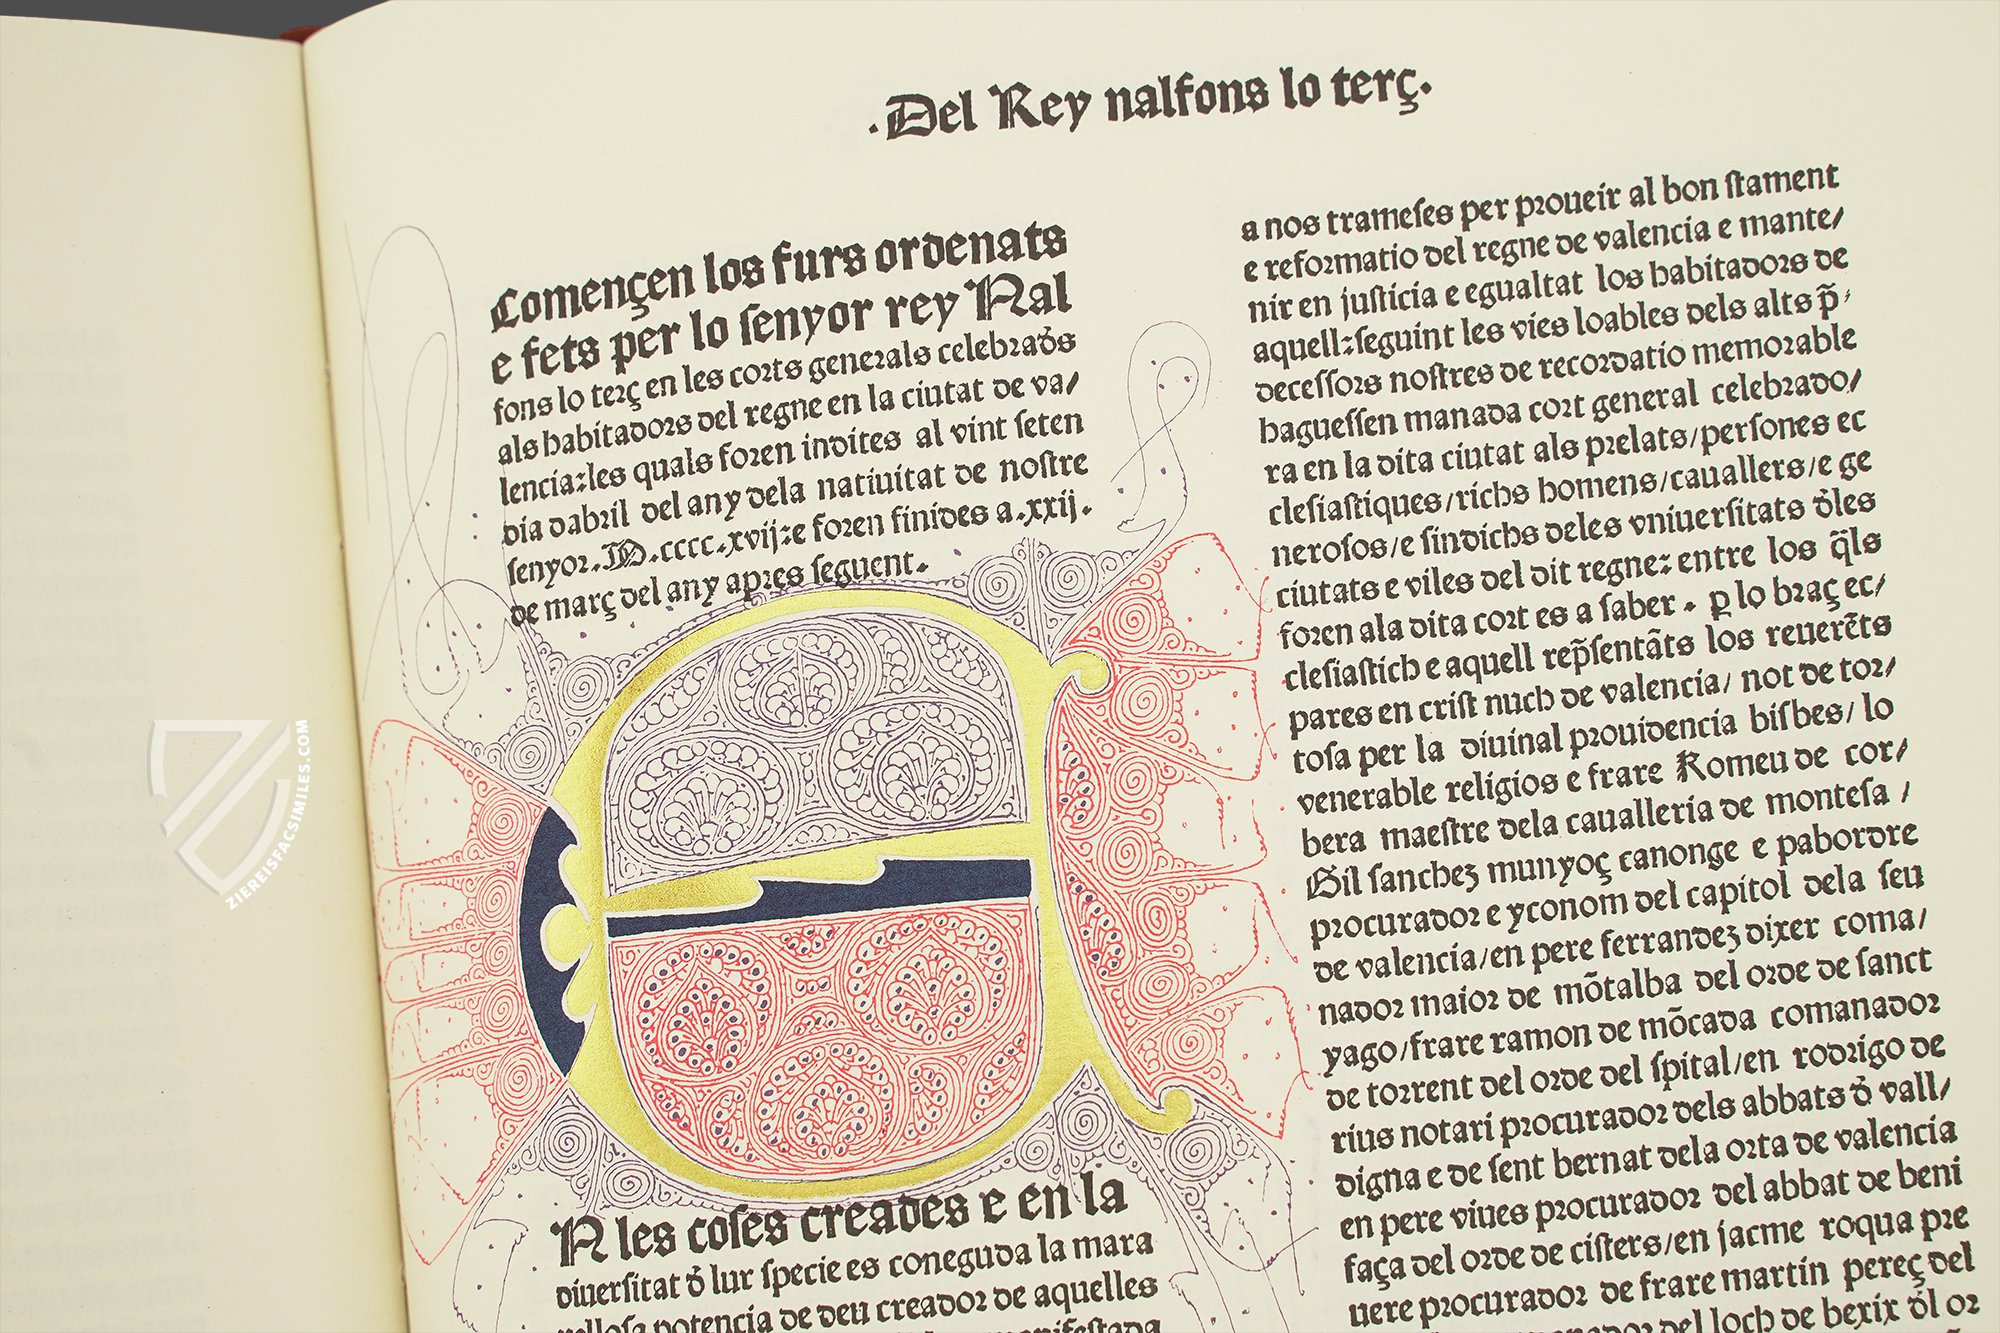 .Del Rey nalfons lo terç.
Començen los furs ordenats
e fets per lo senyor rey Nal
fons lo terç en les corts generals celebradꝰs
als habitadors del regne en la ciutat de va/
lencia:les quals foren indites al vint seten
dia dabril del any dela natiuitat de nostre
senyor.M.cccc.xvij:e foren finides a.xxij.
de març del any apres seguent.
EN les coses creades e en la
diuersitat d̉ lur specie es coneguda la mara
vellosa potencia de deu creador de aquelles
manifestada
a nos trameses per proueir al bon stament
e reformatio del regne de valencia e mante/
nir en justicia e egualtat los habitadors de
aquell:seguint les vies loables dels alts p̃/
decessors nostres de recordatio memorable
haguessen manada cort general celebrado/
ra en la dita ciutat als prelats/persones ec
clesiastiques/richs homens/cauallers/e ge
nerosos/e sindichs deles vniuersitats d̉les
ciutats e viles del dit regne: entre los q̃ls
foren ala dita cort es a saber. ꝑ lo braç ec/
clesiastich e aquell rep̃sentãts los reuerẽts
pares en crist nuch de valencia/ not de tor/
tosa per la diuinal prouidencia bisbes/ lo
venerable religios e frare Romeu de cor/
bera maestre dela caualleria de montesa /
Gil sanchez munyoç canonge e pabordre
procurador e yconom del capitol dela seu
de valencia/en pere ferrandez dixer coma/
nador maior de mõtalba del orde de sanct
yago/frare ramon de mõcada comanador
de torrent del orde del spital/en rodrigo de
rius notari procurador dels abbats d̉ vall/
digna e de sent bernat dela orta de valencia
en pere viues procurador del abbat de beni
faça del orde de cisters/en jacme roqua pre
uere procurador de frare martin pereç del
del loch de bexix d̉l or
ZIEREISFACSIMILES.COM